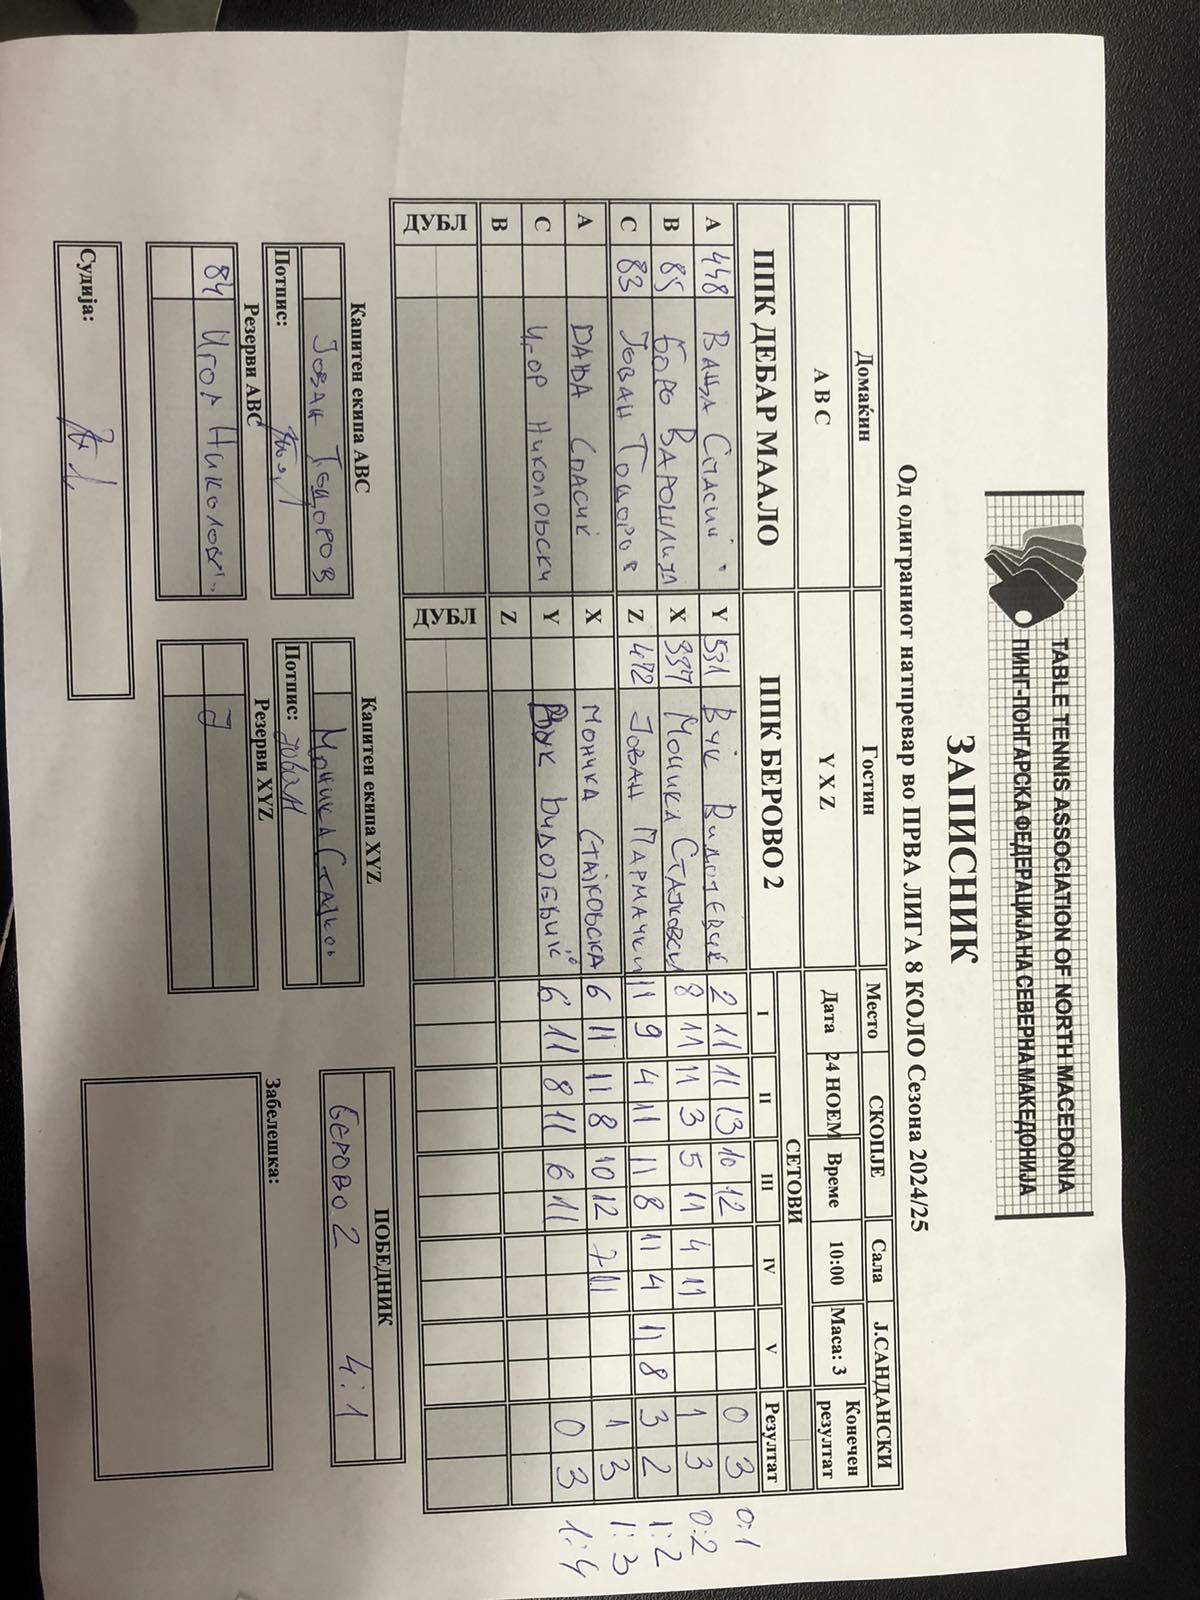 TABLE TENNIS ASSOCIATION OF NORTH MACEDONIA
ПИНГ-ПОНГАРСКА ФЕДЕРАЦИЈА НА СЕВЕРНА МАКЕДОНИЈА
ЗАПИСНИК
Од одиграниот натпревар во ПРВА ЛИГА 8 КОЛО Сезона 2024/25
Домаќин Гостин Место СКОПЈЕ Сала Ј.САНДАНСКИ
A B C Y X Z Дата 24 НОЕМ Време 10:00 Маса: 3 Конечен резултат
ППК ДЕБАР МААЛО ППК БЕРОВО 2 СЕТОВИ
I II III IV V Резултат
A 448 Вања Спасиќ Y 531 Вук 2 11 11 13 10 12 0 3 0:1
B 85 Боро X 337 Моника 8 11 11 3 5 11 4 11 1 3 0:2
C 83 Јован Тошоров Z 472 Јован Пармачки 11 9 4 11 11 8 11 4 11 8 3 2 1:2
A Вања Спасиќ X Моника Стајковска 6 11 11 8 10 12 7 11 1 3 1:3
C Игор Николовски Y Вук Видојевиќ 6 11 8 11 6 11 0 3 1:4
B Z
ДУБЛ ДУБЛ
Капитен екипа ABC Капитен екипа XYZ ПОБЕДНИК
Јован Тошоров Моника Берово 2 4:1
Потпис: Потпис:
Резерви ABC Резерви XYZ Забелешка:
84 Игор
Судија: